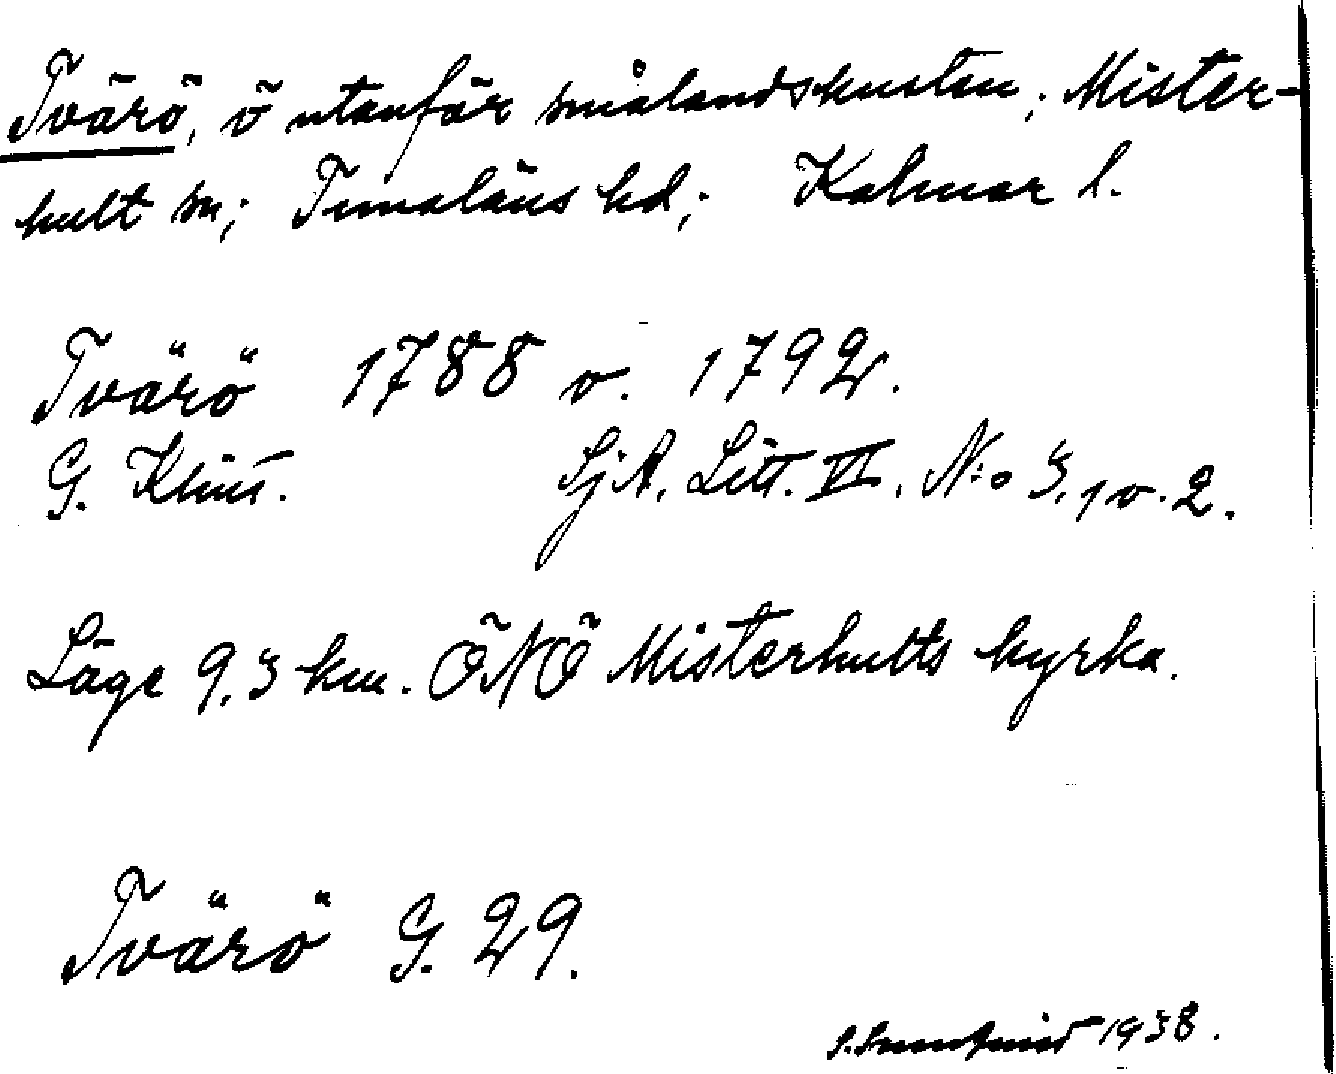 Tvärö, ö utanför smålandskusten; Mister-
hult sn; Tunaläns hd; Kalmar l.
Tvärö 1788 o. 1792.
G. Klint. SjA. Litt. VI. N:o 3, 1 o. 2.
Läge 9,3 km. ÖNÖ Misterhults kyrka.
Tvärö G. 29.
1938.